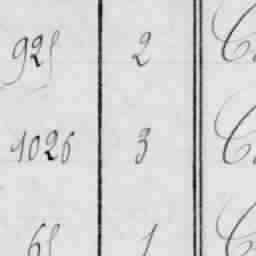 925 2 C
1026 3 C
65 1 C